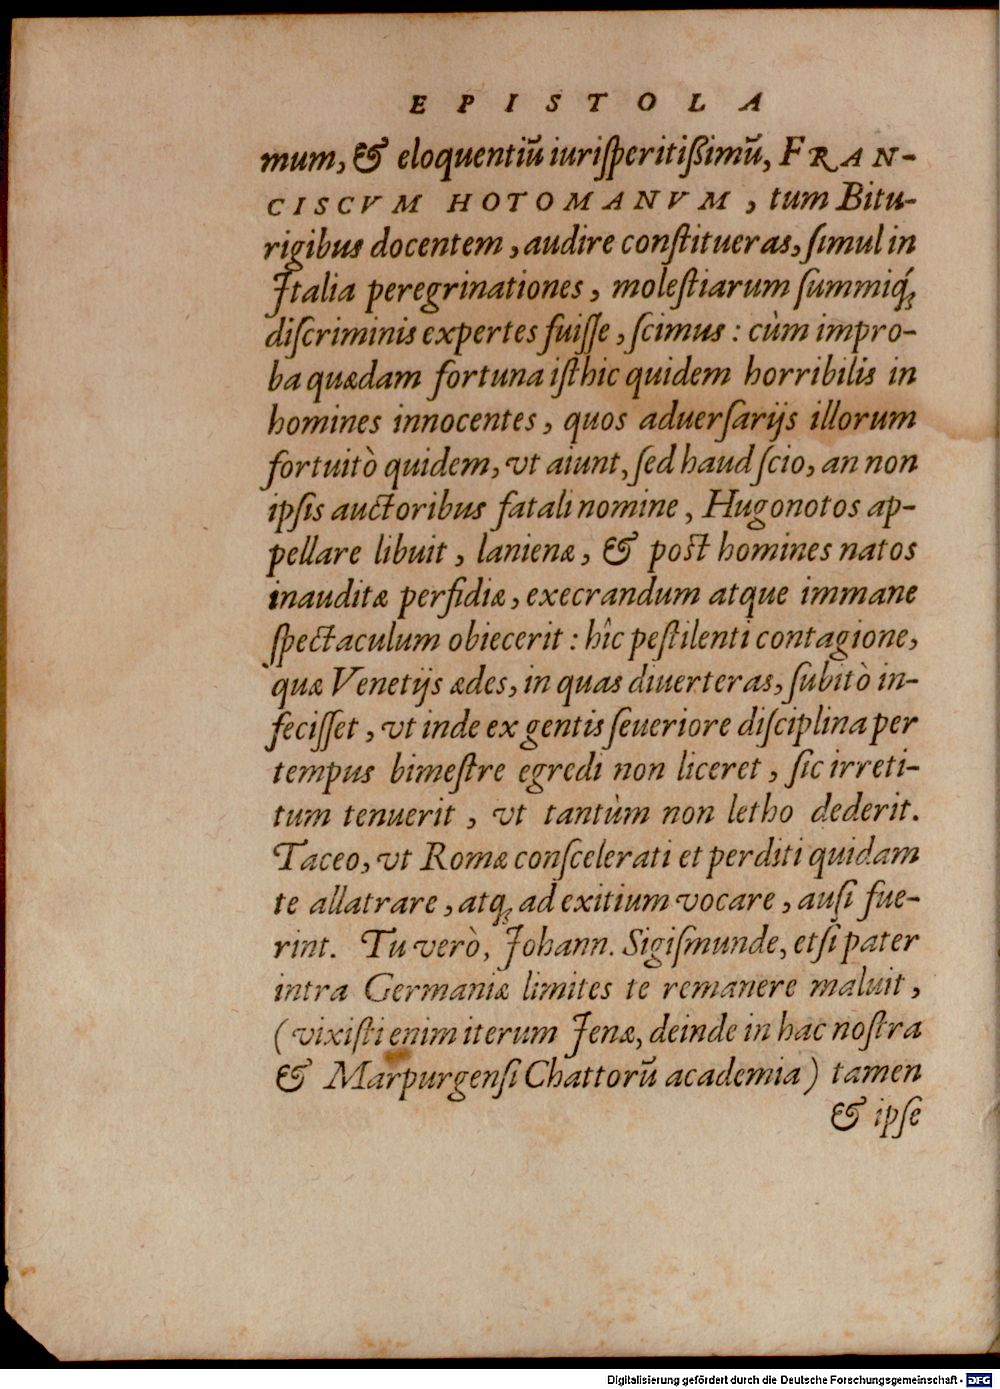 EPISTOLA
mum, & eloquentiū iuriſperitiſsimū, FRAN-
CISCVM HOTOMANVM, tum Bitu-
rigibus docentem, audire conſtitueras, ſimul in
Italia peregrinationes, moleſtiarum ſummiq́;
diſcriminis expertes fuiſſe, ſcimus: cùm impro-
ba quædam fortuna iſthic quidem horribilis in
homines innocentes, quos aduerſarijs illorum
fortuitò quidem, vt aiunt, ſed haud ſcio, an non
ipſis auctoribus fatali nomine, Hugonotos ap-
pellare libuit, lanienæ, & poſt homines natos
inauditæ perfidiæ, execrandum atque immane
ſpectaculum obiecerit: hîc peſtilenti contagione,
quæ Venetijs ædes, in quas diuerteras, ſubitò in-
feciſſet, vt inde ex gentis ſeueriore diſciplina per
tempus bimeſtre egredi non liceret, ſic irreti-
tum tenuerit, vt tantùm non letho dederit.
Taceo, vt Romæ conſcelerati et perditi quidam
te allatrare, atq; ad exitium vocare, auſi fue-
rint. Tu verò, Johann. Sigiſmunde, etſi pater
intra Germaniæ limites te remanere maluit,
(vixiſti enim iterum Jenæ, deinde in hac noſtra
& Marpurgenſi Chattorū academia) tamen
& ipſe
Digitalisierung gefördert durch die Deutsche Forschungsgemeinschaft - DFG